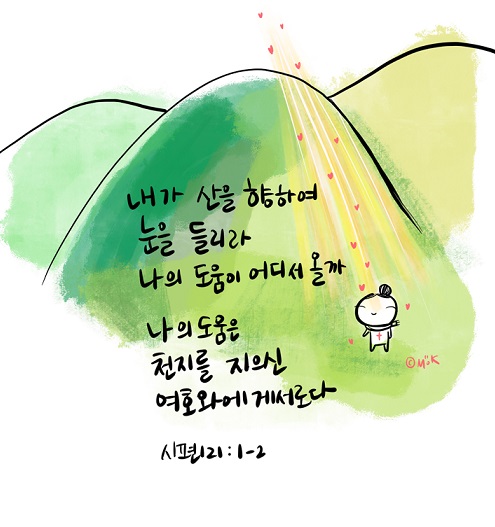 내가 산을 향하여
눈을 들리라
나의 도움이 어디서 올까
나의 도움은
천지를 지으신
여호와에게서로다
시편121:1-2
©MöK